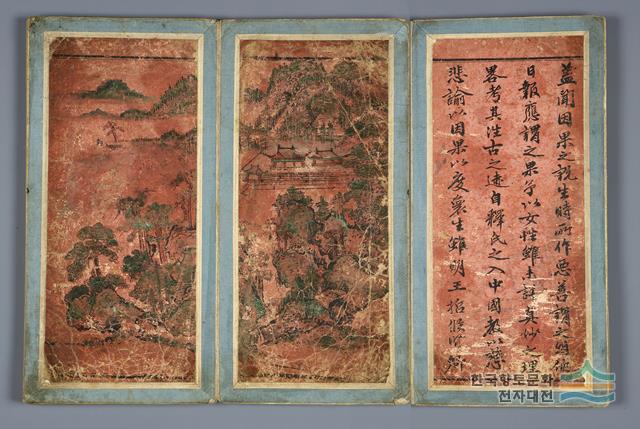 蓋聞因果之說生時所作悪善謂之因後
日報應謂之果予以女性雖未詳真妙之理
畧考其徃古之迹自釋氏之入中國教以慈
悲諭以因果以度衆生雖明王
한국향토문화
전자대전